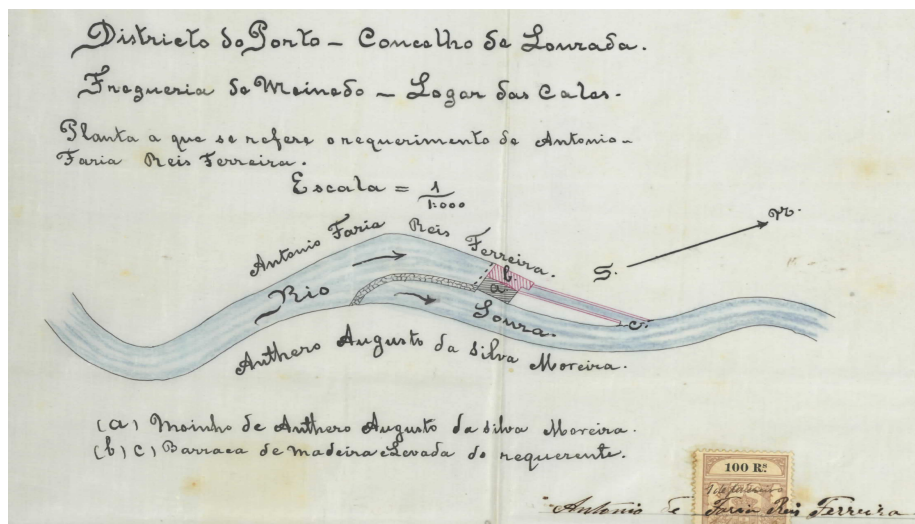 Districto do Porto - Concelho de Lourada.
Fregueria de Meinedo - Logar das Cales.
Planta a que se refere o requerimento de Antonio-
Faria Reis Ferreira.
Escala = 1/1:000
Antonio Faria Reis Ferreira.
N.
S.
b.
a
Rio
Loura.
c.
Anthero Augusto da Silva Moreira.
(a) Moinho de Anthero Augusto da silva Moreira.
(b) c) Barraca de madeira e Levada do requerente.
100 Rs.
Antonio de Faria Reis Ferreira